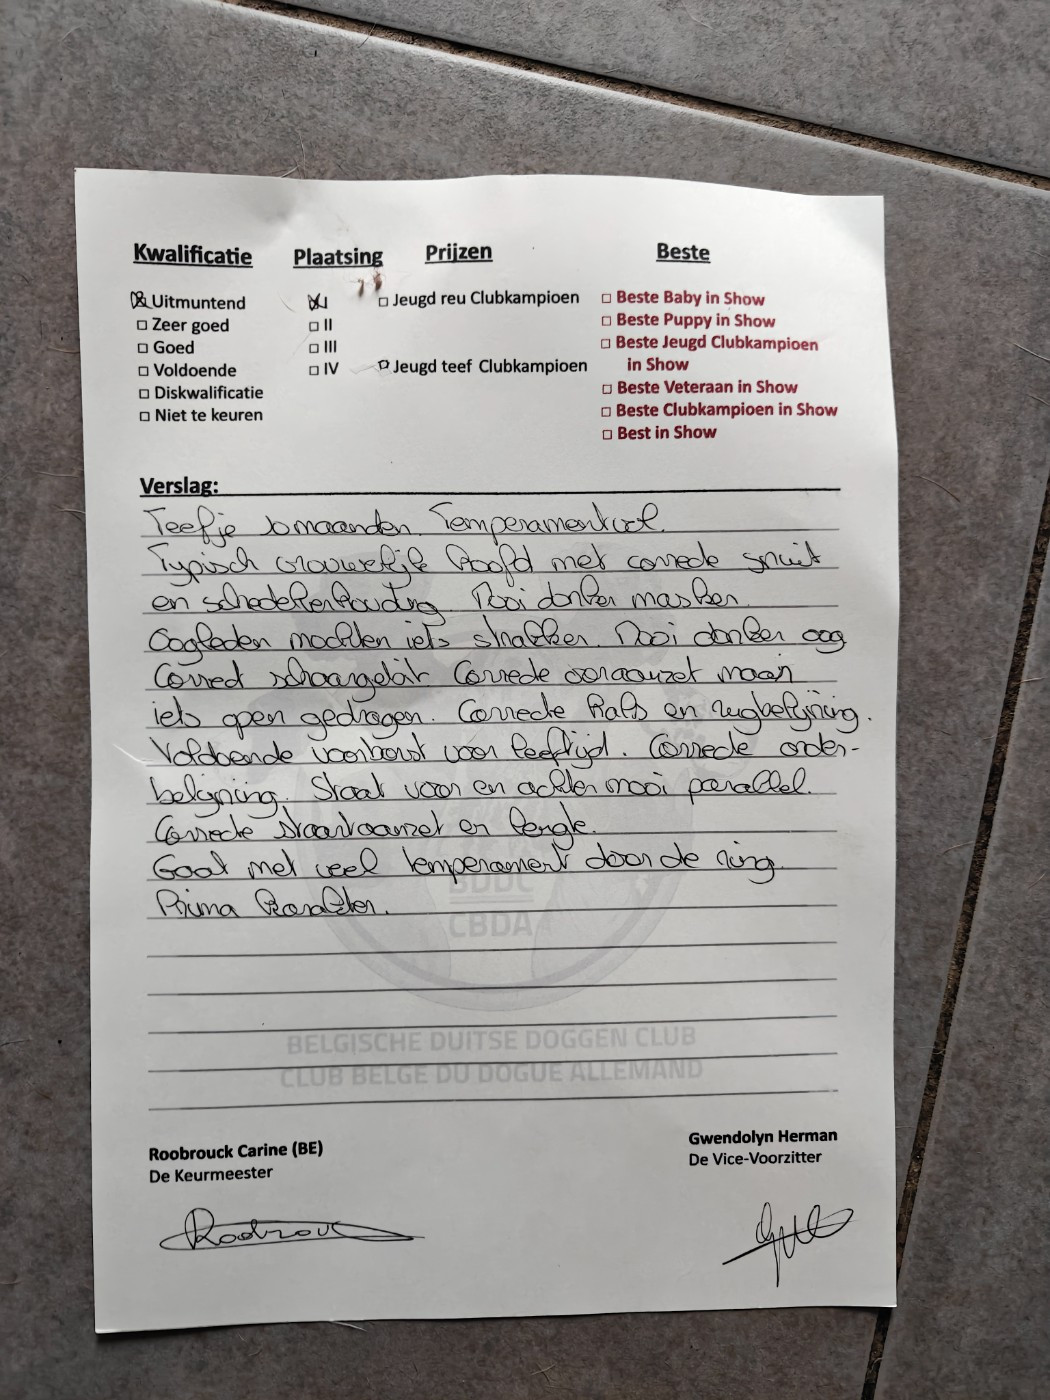 Kwalificatie Plaatsing Prijzen Beste
Uitmuntend I Jeugd reu Clubkampioen Beste Baby in Show
Zeer goed II Beste Puppy in Show
Goed III Beste Jeugd Clubkampioen
Voldoende IV Jeugd teef Clubkampioen in Show
Diskwalificatie Beste Veteraan in Show
Niet te keuren Beste Clubkampioen in Show
Best in Show
Verslag:
Teefje maanden. Temperamentvol.
Typisch vrouwelijk hoofd met correcte snuit
en schedelverhouding. Mooi donker masker.
Oogleden mochten iets strakker. Mooi donker oog
Correct schaargebit Correcte ooraanzet maar
iets open gedragen. Correcte hals en rugbelijning.
Voldoende voorborst voor leeftijd. Correcte onder-
belijning. Staat voor en achter mooi parallel.
Correcte staartaanzet en lengte.
Gaat met veel temperament door de ring.
Prima karakter.
BDDC
CBDA
BELGISCHE DUITSE DOGGEN CLUB
CLUB BELGE DU DOGUE ALLEMAND
Roobrouck Carine (BE) Gwendolyn Herman
De Keurmeester De Vice-Voorzitter
Roobrouck